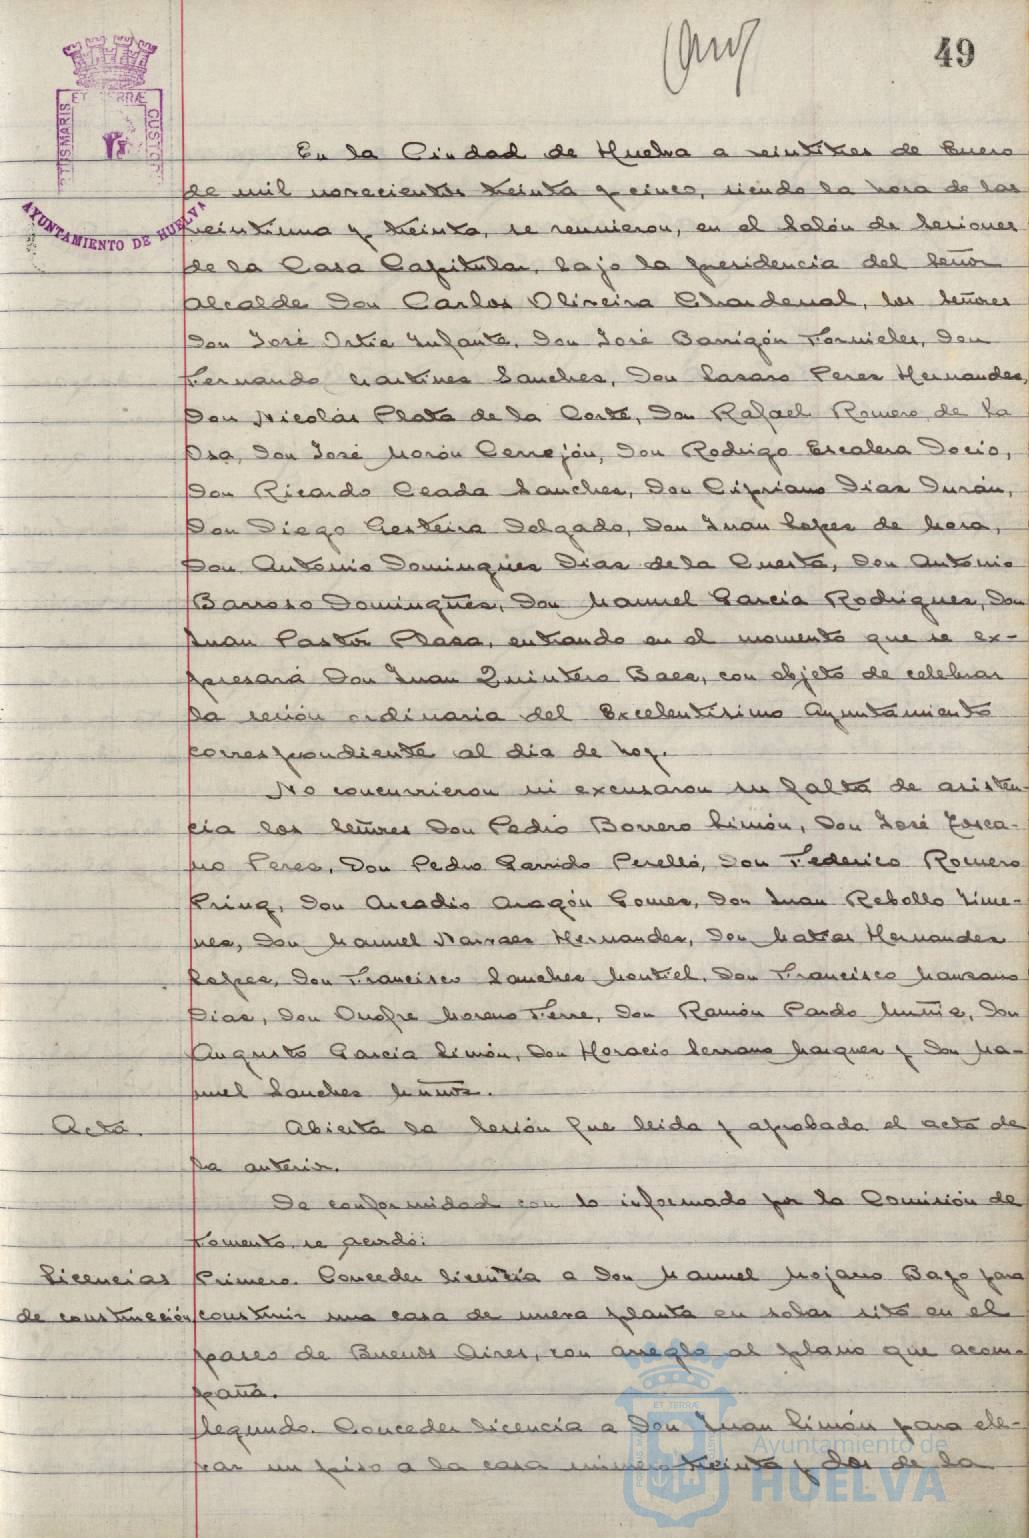 49
ET TERRÆ
AYUNTAMIENTO DE HUELVA
En la Ciudad de Huelva a veintitres de Enero
de mil novecientos treinta y cinco, siendo la hora de las
veintiuna y treinta, se reunieron, en el Salón de Sesiones
de la Casa Capitular, bajo la presidencia del Señor
Alcalde Don Carlos Oliveira Chardenal, los Señores
Don José Ortiz Infante, Don José Barrigón Fornieles, Don
Fernando Martinez Sanchez, Don Lazaro Perez Hernandez,
Don Nicolás Plata de la Corte, Don Rafael Romero de la
Osa, Don José Morón Cerrejón, Don Rodrigo Escalera Docio,
Don Ricardo Ceada Sanchez, Don Cipriano Diaz Durán,
Don Diego Gesteira Delgado, Don Juan Lopez de Mora,
Don Antonio Dominguez Diaz de la Cuesta, Don Antonio
Barroso Dominguez, Don Manuel Garcia Rodriguez, Don
Juan Pastor Plaza, entrando en el momento que se ex-
presará Don Juan Quintero Baez, con objeto de celebrar
la sesión ordinaria del Excelentísimo Ayuntamiento
correspondiente al día de hoy.
No concurrieron ni excusaron su falta de asisten-
cia los Señores Don Pedro Borrero Limón, Don José Tosca-
no Perez, Don Pedro Garrido Perelló, Don Federico Romero
Pring, Don Arcadio Aragón Gomez, Don Juan Rebollo Jime-
nez, Don Manuel Narvaez Hernandez, Don Matias Hernandez
Lopez, Don Francisco Sanchez Montiel, Don Francisco Manzano
Diaz, Don Onofre Moreno Ferre, Don Ramón Pardo Muñiz, Don
Augusto Garcia Limón, Don Horacio Serrano Marquez y Don Ma-
nuel Sanchez Muñoz.
Acta. Abierta la Sesión fue leida y aprobada el acta de
la anterior.
De conformidad con lo informado por la Comisión de
Fomento, se acordó:
Licencias Primero. Conceder licencia a Don Manuel Mojarro Bayo para
de construcción construir una casa de nueva planta en solar sito en el
paseo de Buenos Aires, con arreglo al plano que acom-
paña.
Segundo. Conceder licencia a Don Juan Limón para ele-
var un piso a la casa número treinta y dos de la
ET TERRÆ
Ayuntamiento de
HUELVA